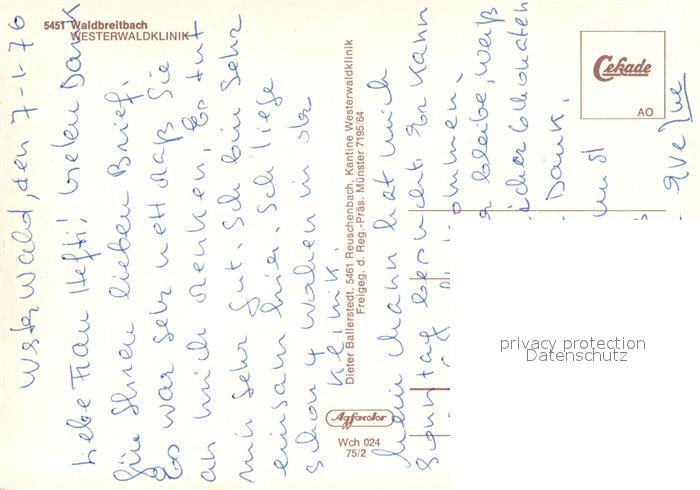 5451 Waldbreitbach
WESTERWALDKLINIK
Westerwald, den 7-1-76
Liebe Frau Hefti! Vielen Dank
für Ihren lieben Brief.
Es war sehr nett daß Sie
an mich denken. Es tut
mir sehr gut. Ich bin sehr
einsam hier. Ich liege
schon 4 Wochen in der
Klinik.
Dieter Ballerstedt, 5461 Reuschenbach, Kantine Westerwaldklinik
Freigeg. d. Reg.-Präs. Münster 7195/64
Agfacolor
Wch 024
75/2
Mein Mann hat mich
Sonntag besucht. Er kann
ommen.
bleibe, weiß
Dank.
und
Cekade
AO
privacy protection
Datenschutz